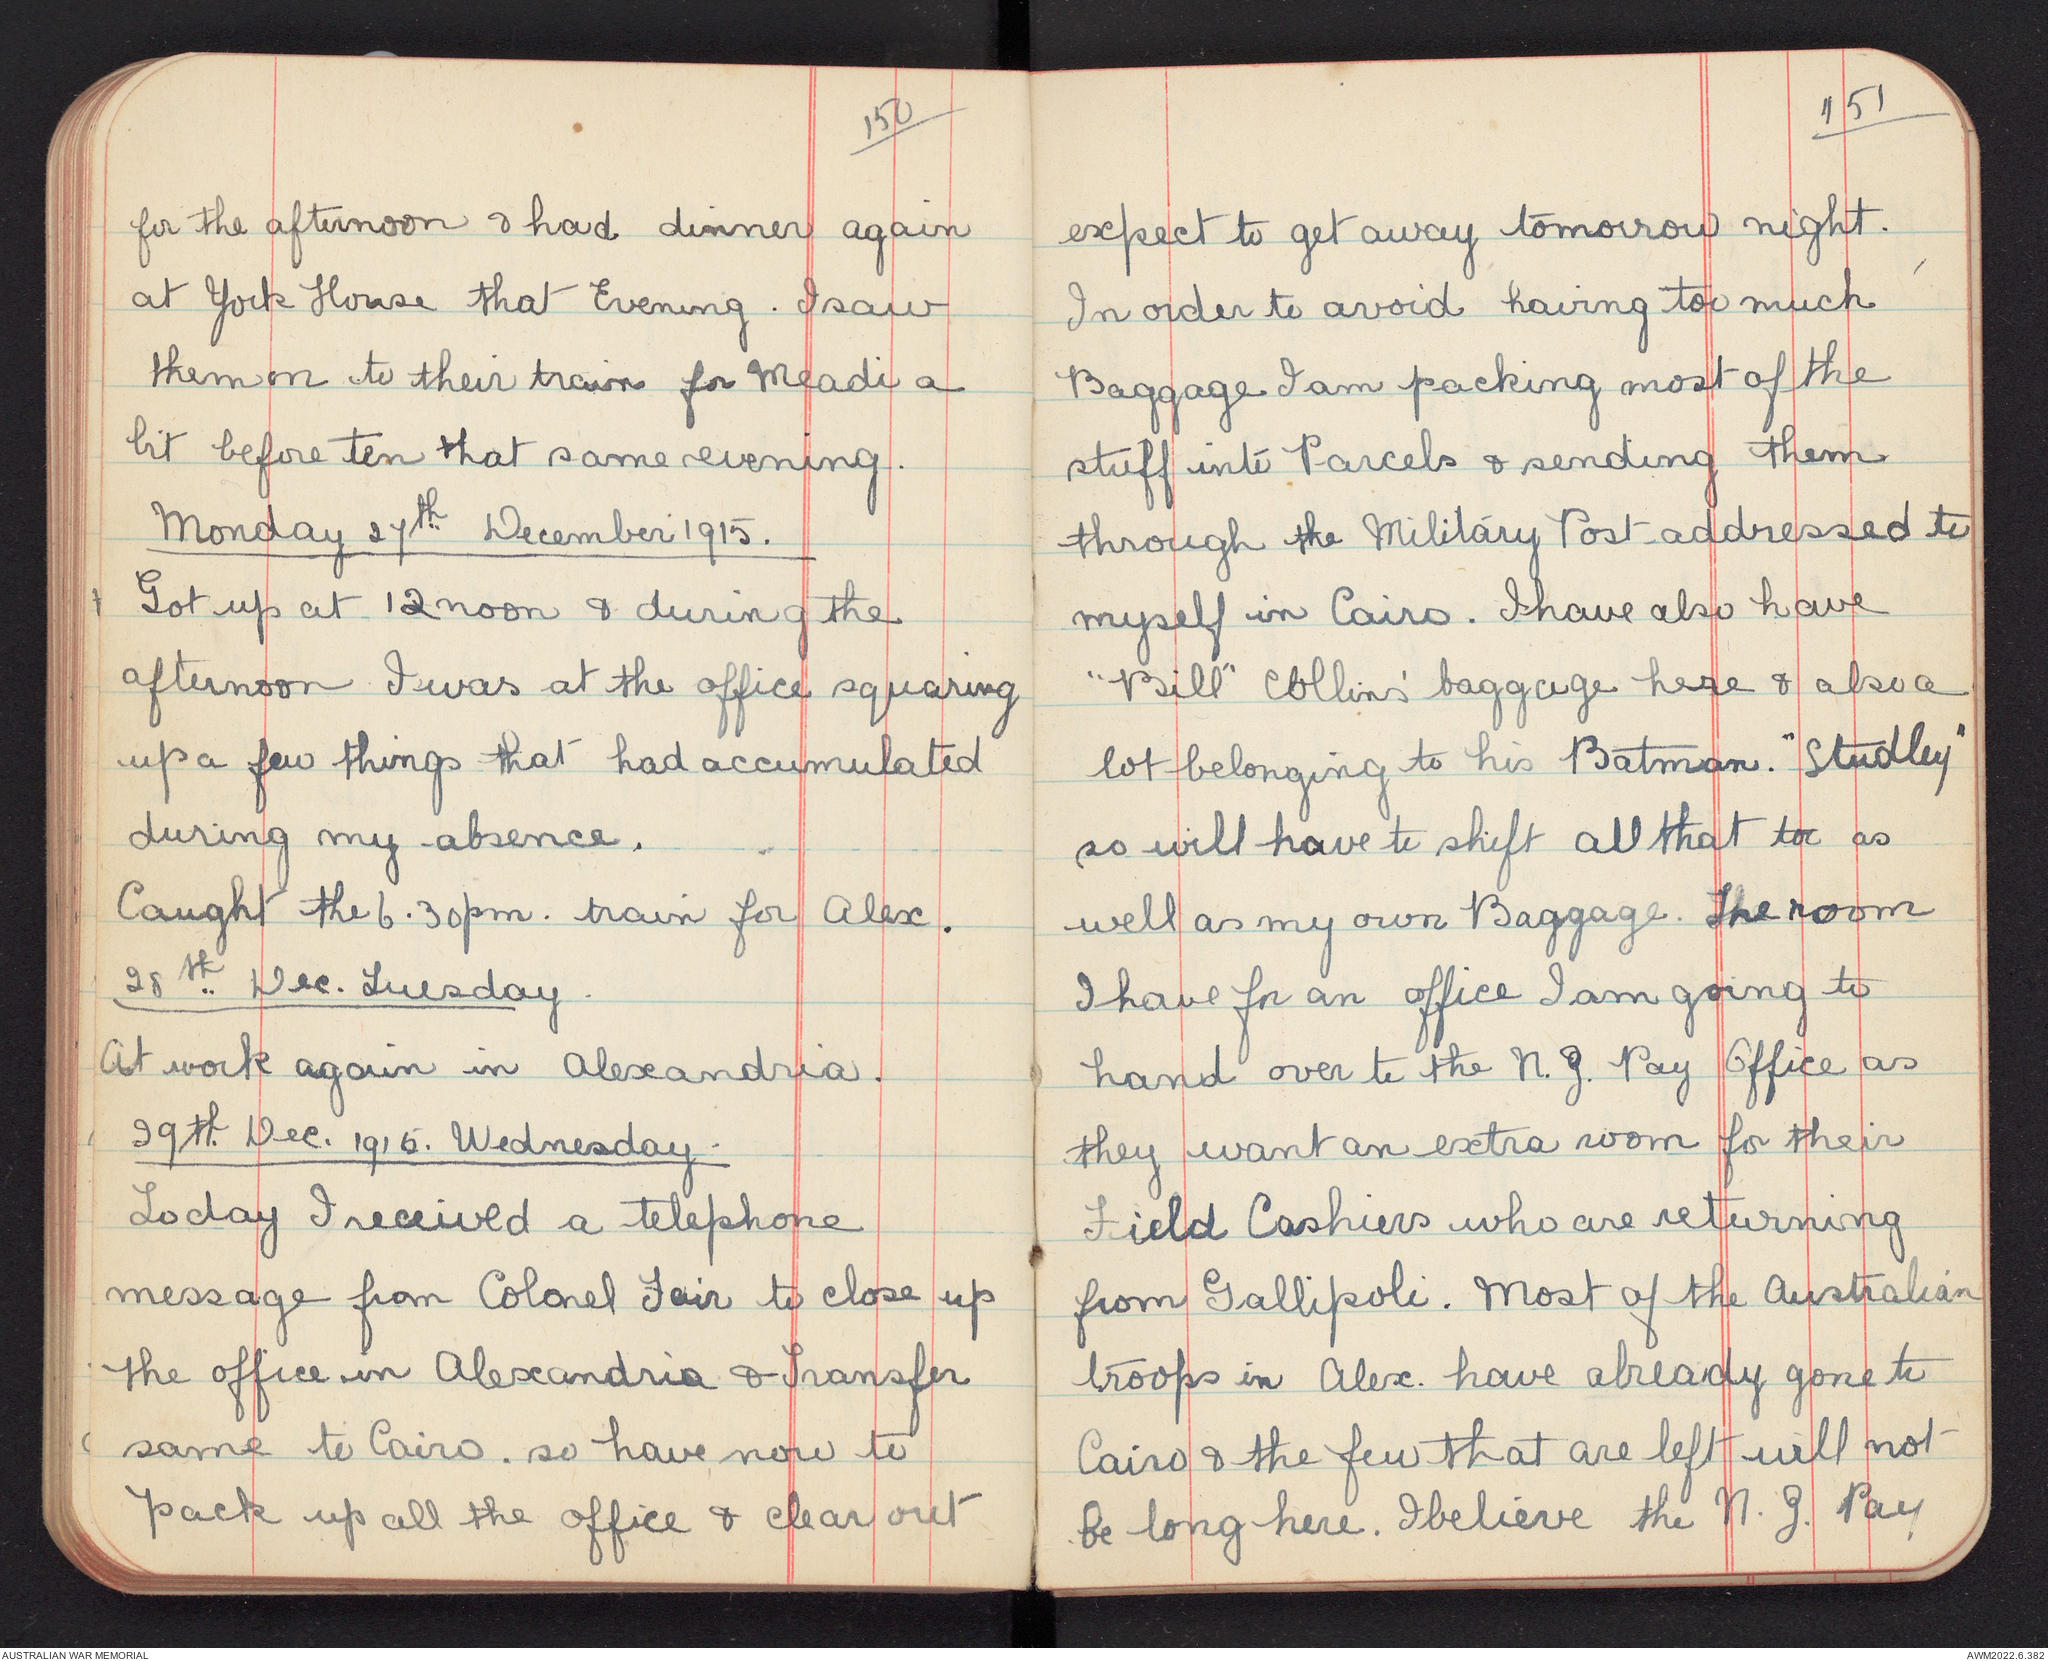 150
for the afternoon & had dinner again
at York House that Evening. I saw
them on to their train for Meadi a
bit before ten that same evening.
Monday 27th December 1915.
Got up at 12 noon & during the
afternoon I was at the office squaring
up a few things that had accumulated
during my absence.
Caught the 6.30pm. train for Alex.
28th Dec. Tuesday.
At work again in Alexandria.
29th Dec. 1915. Wednesday.
Today I received a telephone
message from Colonel Fair to close up
the office in Alexandria & Transfer
same to Cairo. so have now to
pack up all the office & clear out
151
expect to get away tomorrow night.
In order to avoid having too much
Baggage I am packing most of the
stuff into Parcels & sending them
through the Military Post addressed to
myself in Cairo. I have also have
"Bill" Collins' baggage here & also a
lot belonging to his Batman. "Studley"
so will have to shift all that too as
well as my own Baggage. The room
I have for an office I am going to
hand over to the N.Z. Pay Office as
they want an extra room for their
Field Cashiers who are returning
from Gallipoli. Most of the Australian
troops in Alex. have already gone to
Cairo & the few that are left will not
be long here. I believe the N.Z. Pay
AUSTRALIAN WAR MEMORIAL
AWM2022.6.382